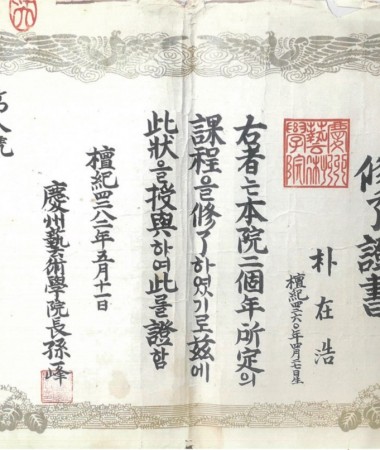 修了證書
慶州
藝術
學院
朴在浩
檀紀四二六〇年四月二七日生
右者는本院二個年所定의
課程을修了하였기로玆에
此狀을授與하여此를證함
檀紀四二八二年五月十一日
慶州藝術學院長孫一峰